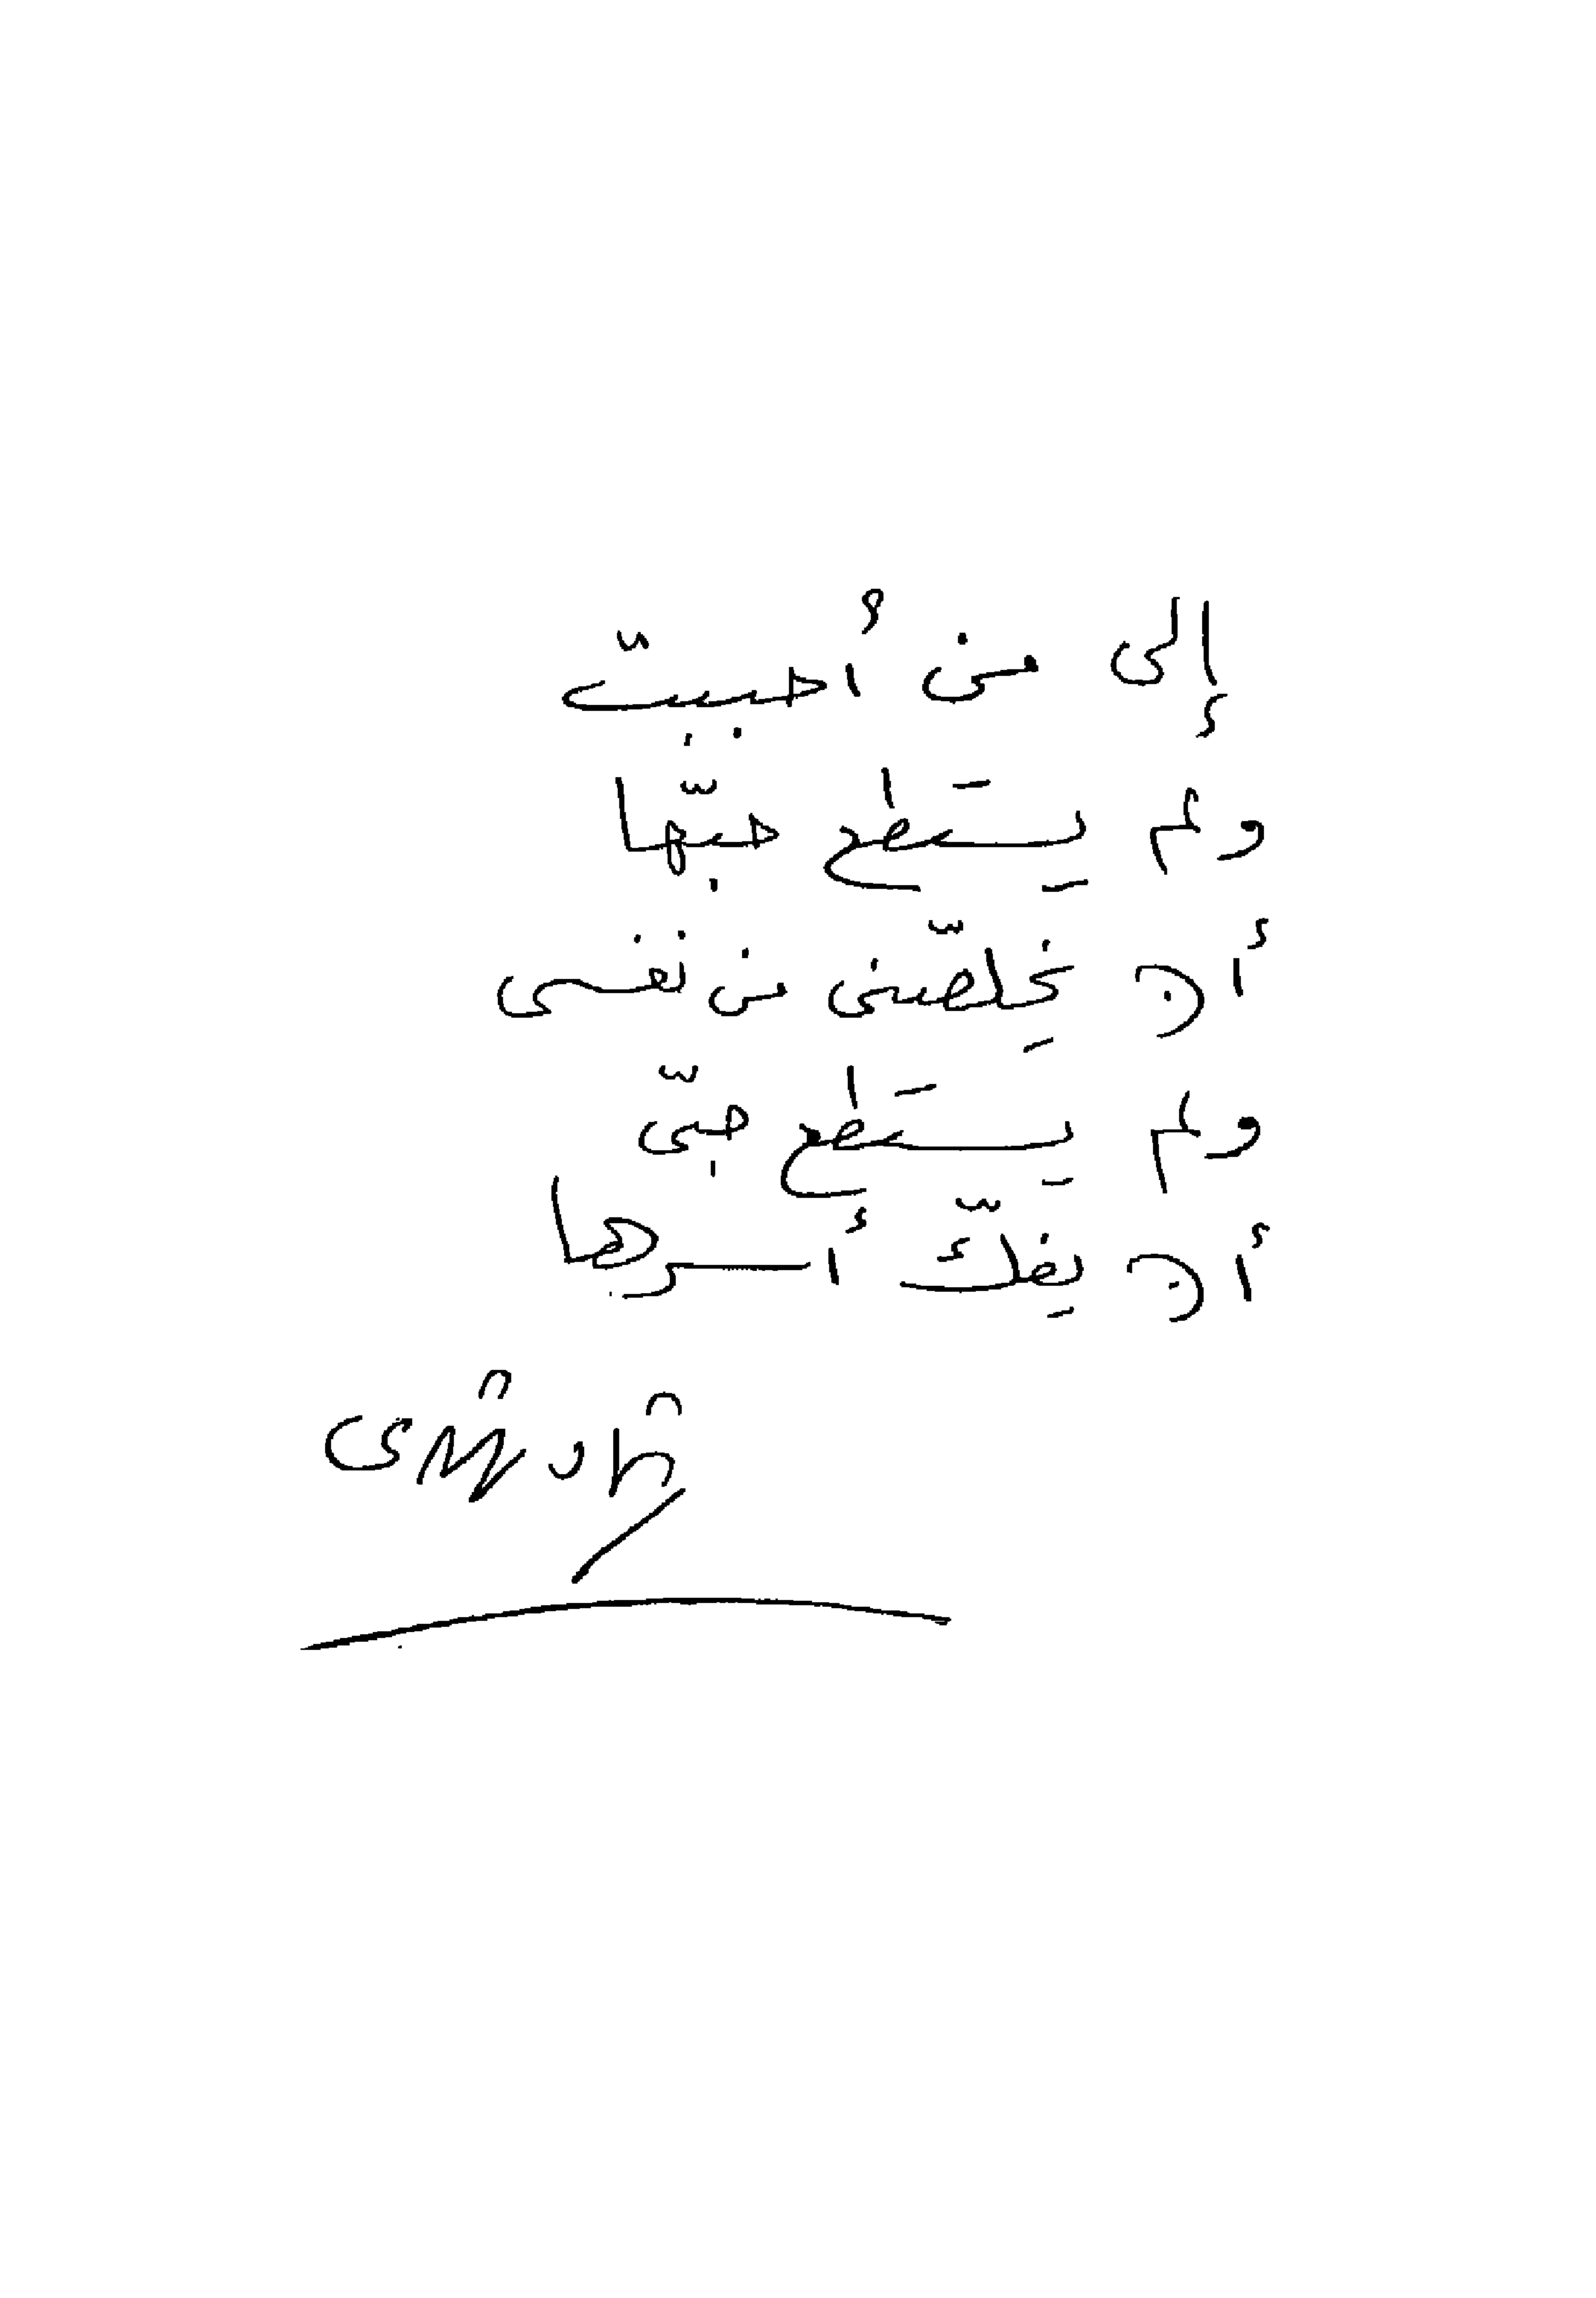 إلى من أُحببت
ولم يستَطع حبّها
أن يخلّصنى من نفسى
ولم يستَطع حبّى
أن يفكّ أسرها